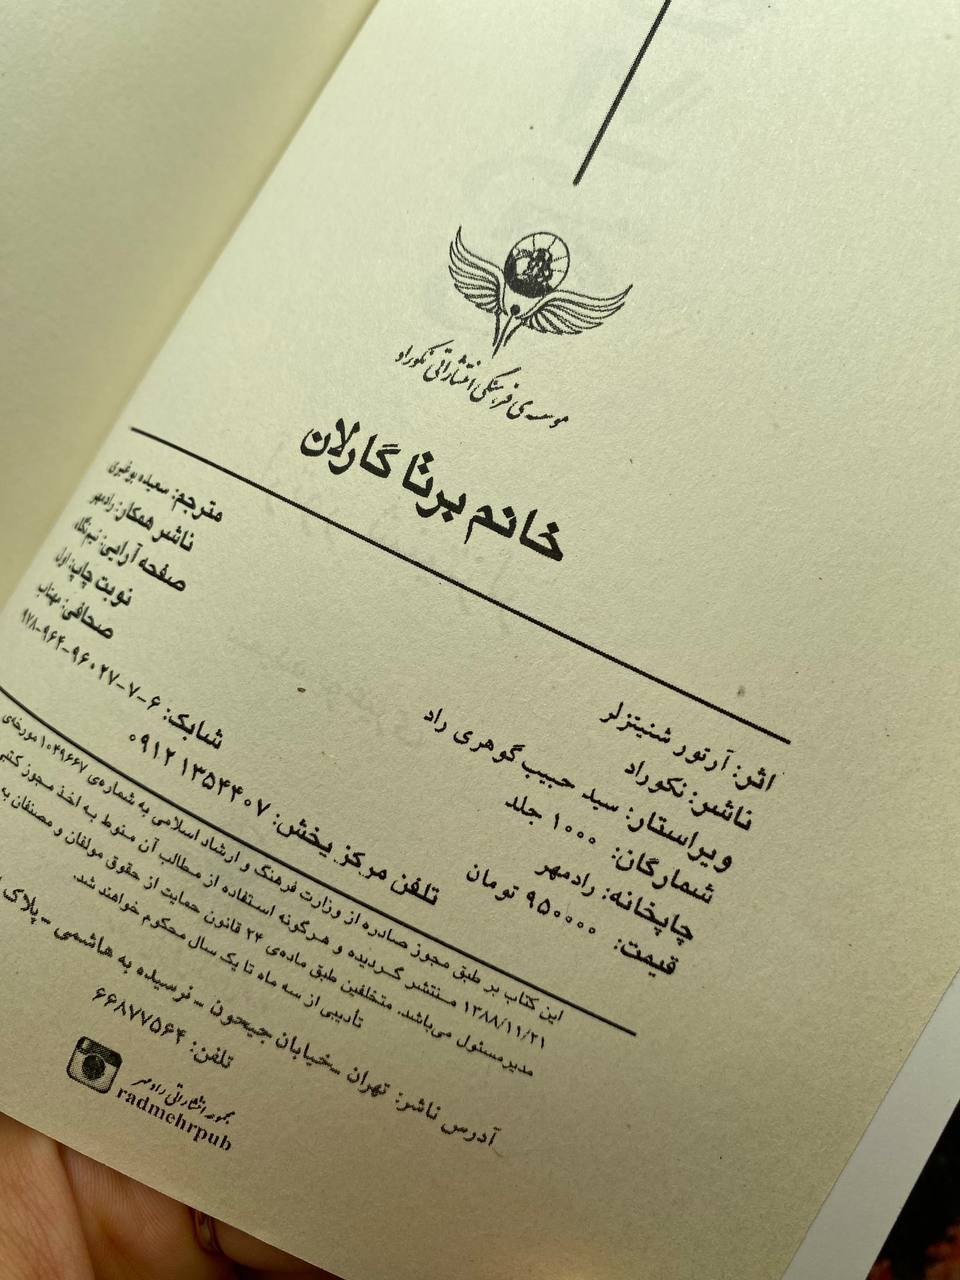 موسسه‌ی فرهنگی انتشاراتی نکوراد
خانم برتا گارلان
اثر: آرتور شنیتزلر
ناشر: نکوراد
ویراستار: سید حبیب گوهری راد
شمارگان: ۱۰۰۰ جلد
چاپخانه: رادمهر
قیمت: ۹۵۰۰۰۰ تومان
مترجم: سعیده بوغیری
ناشر همکار: رادمهر
صفحه آرایی: نیم‌نگاه
نوبت چاپ: اول
صحافی: مهتاب
شابک: ۶-۷-۹۶۰۲۷-۹۶۴-۹۷۸
تلفن مرکز پخش: ۰۹۱۲ ۱۳۵۴۴۰۷
این کتاب بر طبق مجوز صادره از وزارت فرهنگ و ارشاد اسلامی به شماره‌ی ۱۰۴۹۶۶۷ مورخه‌ی
۱۳۸۸/۱۱/۲۱ منتشر گردیده و هرگونه استفاده از مطالب آن منوط به اخذ مجوز کتبی
مدیرمسئول می‌باشد. متخلفین طبق ماده‌ی ۲۴ قانون حمایت از حقوق مولفان و مصنفان به
تأدیبی از سه ماه تا یک سال محکوم خواهند شد.
آدرس ناشر: تهران _ خیابان جیحون _ نرسیده به هاشمی _ پلاک
تلفن: ۶۶۸۷۷۵۶۴
مجموعه انتشاراتی رادمهر
radmehrpub